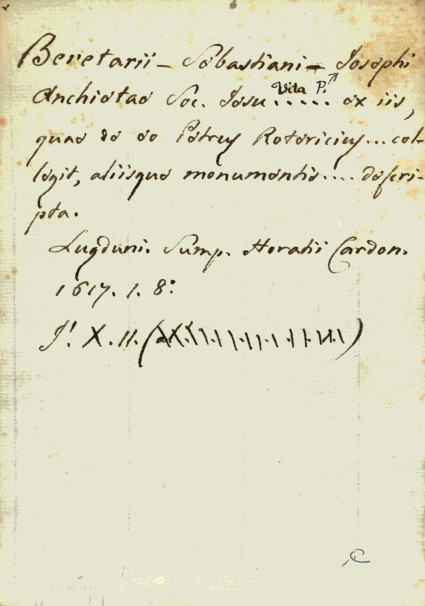 Beretarii – Sebastiani – Josephi
Vita P.
Anchietae Soc. Jesu ..... ex iis,
quae de eo Petrus Rotericius ... col-
legit, aliisque monumentis .... descri-
pta.
Lugduni. Sump. Horatii Cardon.
1617. 1. 8:
J! X. 11. (
C